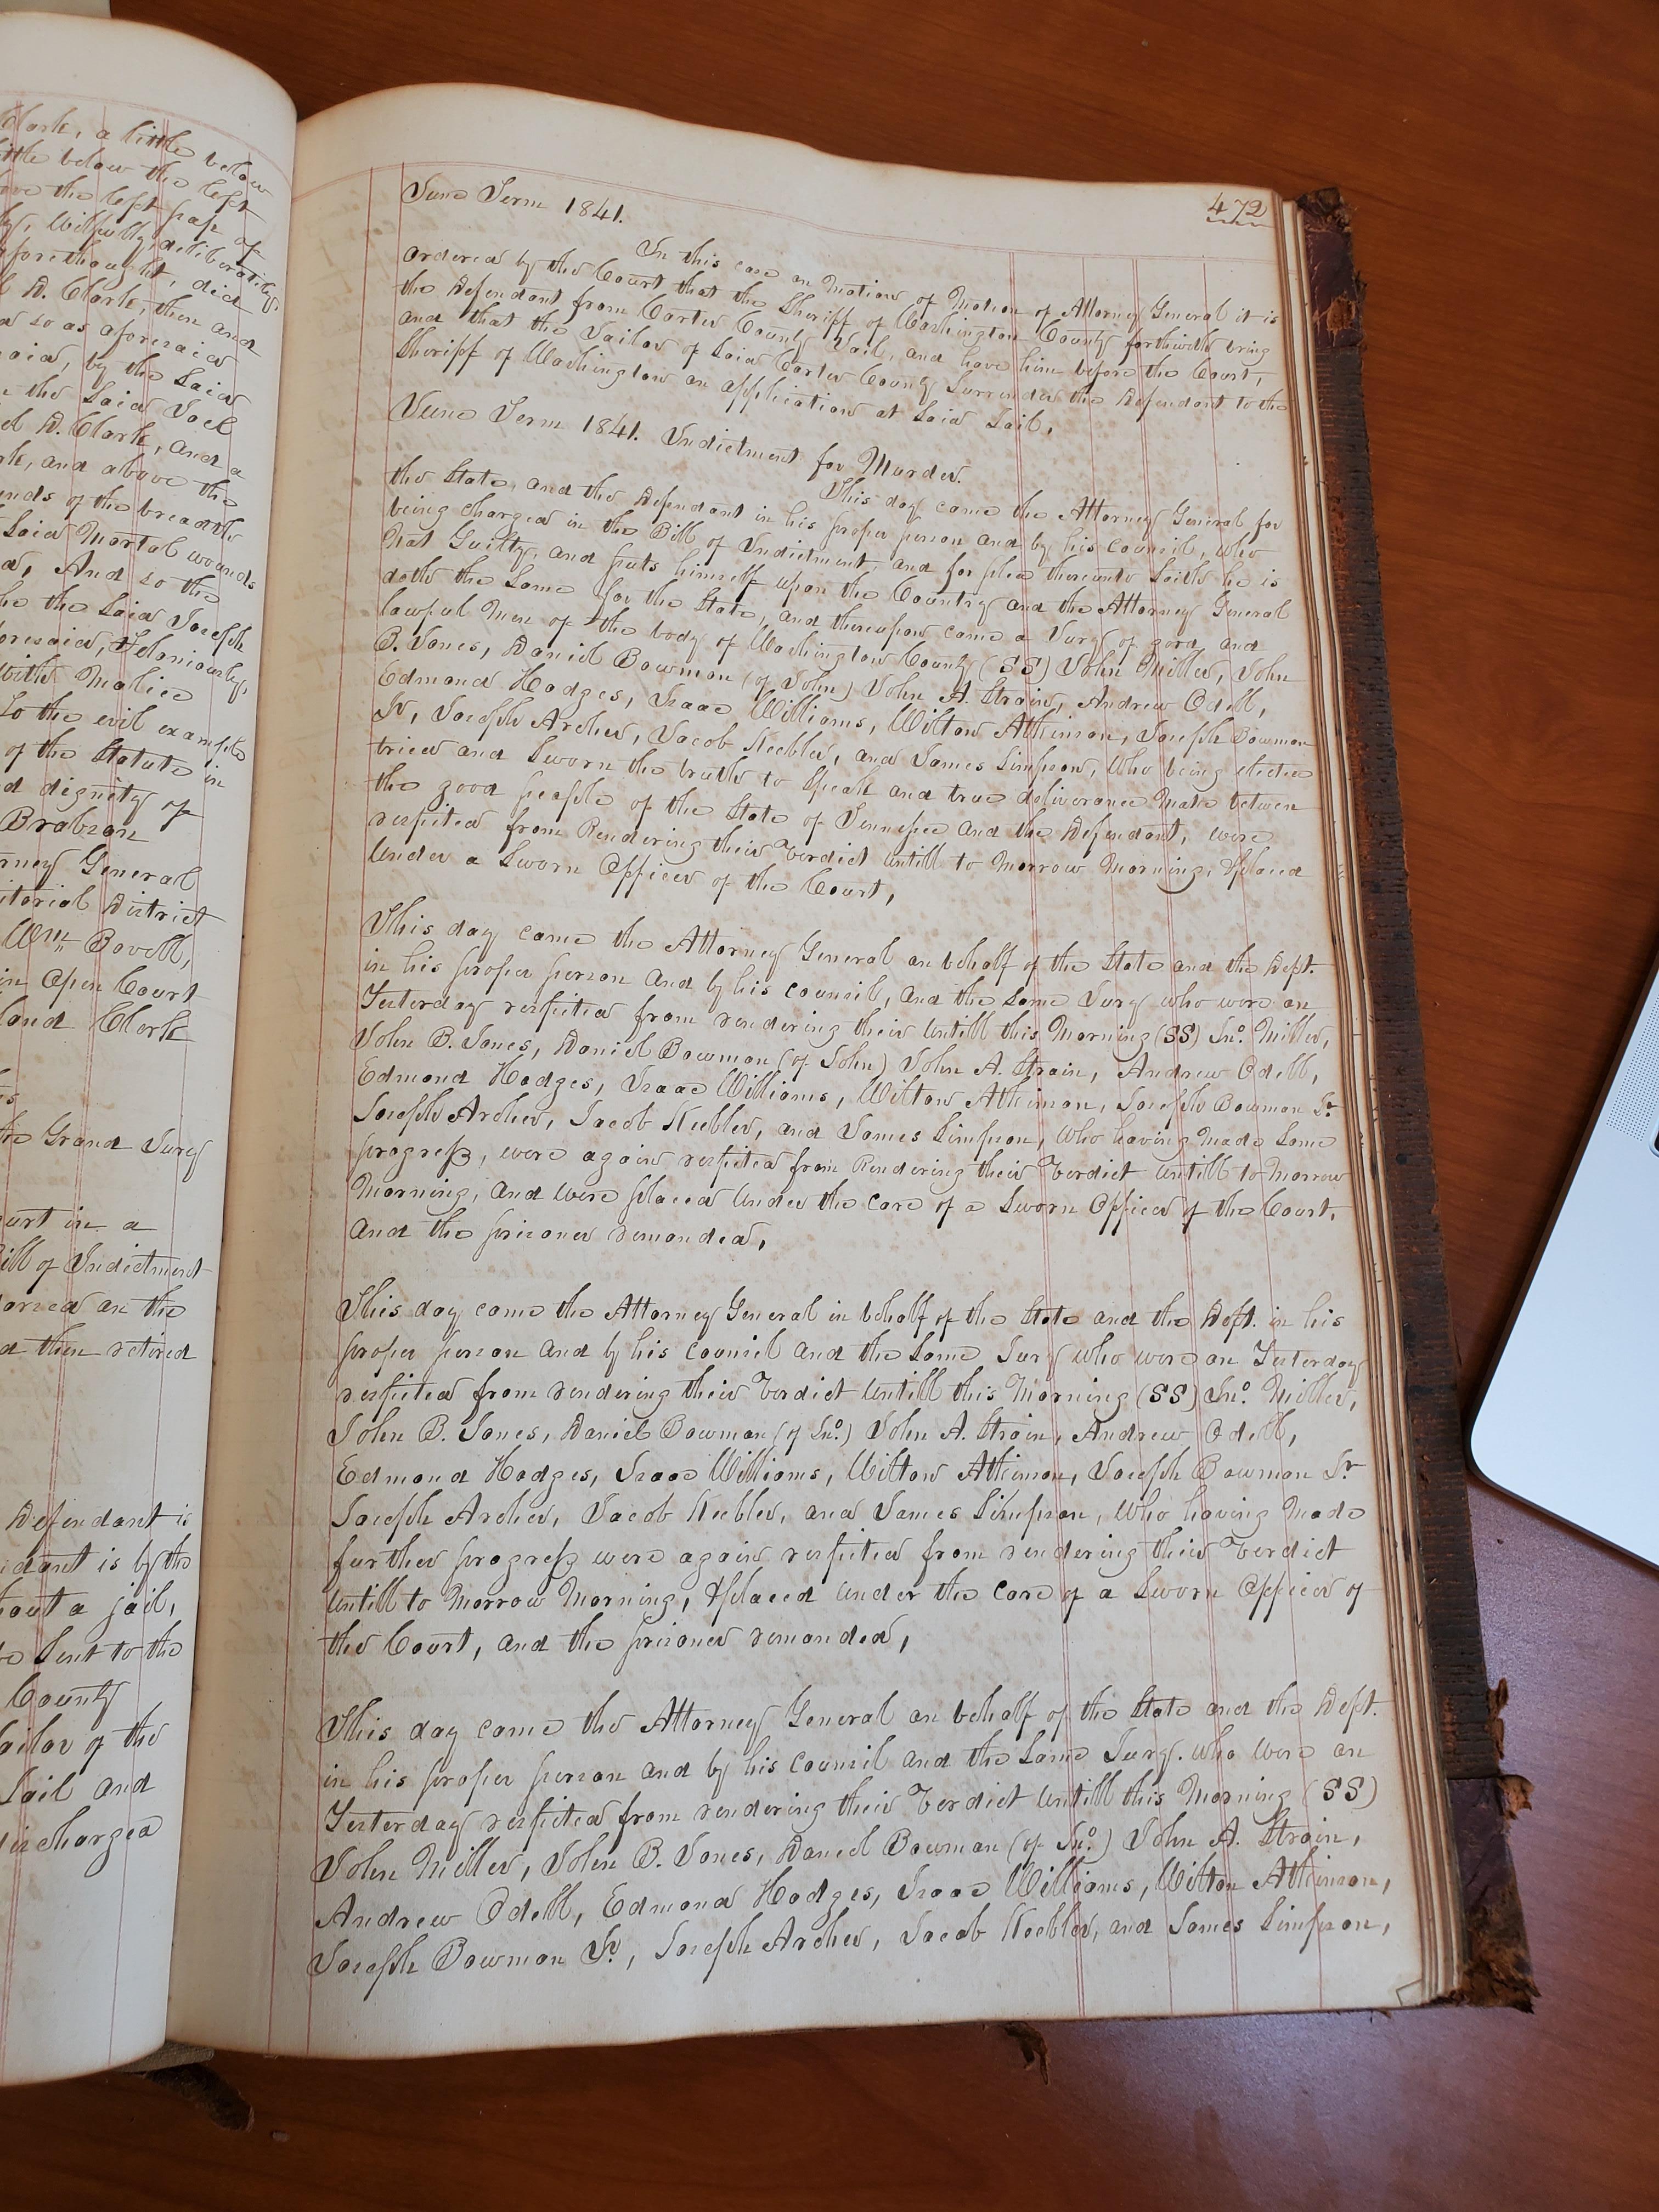 Clark, a little below
little below the left
above the left pap of
Willfully, deliberately,
aforethought, did
D. Clark, then and
so as aforesaid
said, by the said
the said Joel
D. Clark, and a
and above the
of the breadth
said Mortal wounds
And so the
he the said Joseph
aforesaid, Feloniously,
with Malice
to the evil example
of the Statute in
dignity of
Brabson
General
District
Wm Bovell,
in Open Court
Clark
the Grand Jury
in a
Bill of Indictment
on the
then retired
Defendant is
is by the
a jail,
Sent to the
County
Jailor of the
Jail and
discharged
June Term 1841.
472
In this case on Motion of Motion of Attorney General it is
ordered by the Court that the Sheriff of Washington County forthwith bring
the Defendant from Carter County Jail, and have him before the Court,
and that the Jailor of Said Carter County Surrender the Defendant to the
Sheriff of Washington on application at Said Jail,
June Term 1841. Indictment for Murder.
This day came the Attorney General for
the State, and the Defendant in his proper person and by his council, who
being charged in the Bill of Indictment, and for plea thereunto Saith he is
Not Guilty, and puts himself upon the Country and the Attorney General
doth the Same for the State, and thereupon came a Jury of good and
lawful Men of the body of Washington County (SS) John Miller, John
B. Jones, Daniel Bowman (of John) John A. Strain, Andrew Odell,
Edmond Hodges, Isaac Williams, Wilton Atkinson, Joseph Bowman
Sr, Joseph Archer, Jacob Keebler, and James Simpson, Who being elected
tried and Sworn the truth to Speak and true deliverance Make between
the good people of the State of Tennessee and the Defendant, were
respited from Rendering their Verdict untill to Morrow Morning, & placed
under a Sworn Officer of the Court,
This day came the Attorney General on behalf of the State and the Deft.
in his proper person and by his council, and the Same Jury who were on
Yesterday respited from rendering their untill this Morning (SS) Jno. Miller,
John B. Jones, Daniel Bowman (of John) John A. Strain, Andrew Odell,
Edmond Hodges, Isaac Williams, Wilton Atkinson, Joseph Bowman Sr
Joseph Archer, Jacob Keebler, and James Simpson, Who having Made Some
progress, were again respited from Rendering their Verdict untill to Morrow
Morning, and were placed under the care of a Sworn Officer of the Court,
and the prisoner remanded,
This day came the Attorney General in behalf of the State and the Deft. in his
proper person and by his council and the Same Jury who were on Yesterday
respited from rendering their Verdict untill this Morning (SS) Jno. Miller,
John B. Jones, Daniel Bowman (of Jno.) John A. Strain, Andrew Odell,
Edmond Hodges, Isaac Williams, Wilton Atkinson, Joseph Bowman Sr
Joseph Archer, Jacob Keebler, and James Simpson, Who having Made
further progress were again respited from rendering their Verdict
untill to Morrow Morning, & placed under the care of a Sworn Officer of
the Court, and the prisoner remanded,
This day came the Attorney General on behalf of the State and the Deft.
in his proper person and by his council and the Same Jury. who were on
Yesterday respited from rendering their Verdict untill this Morning (SS)
John Miller, John B. Jones, Daniel Bowman (of Jno.) John A. Strain,
Andrew Odell, Edmond Hodges, Isaac Williams, Wilton Atkinson,
Joseph Bowman Sr., Joseph Archer, Jacob Keebler, and James Simpson,